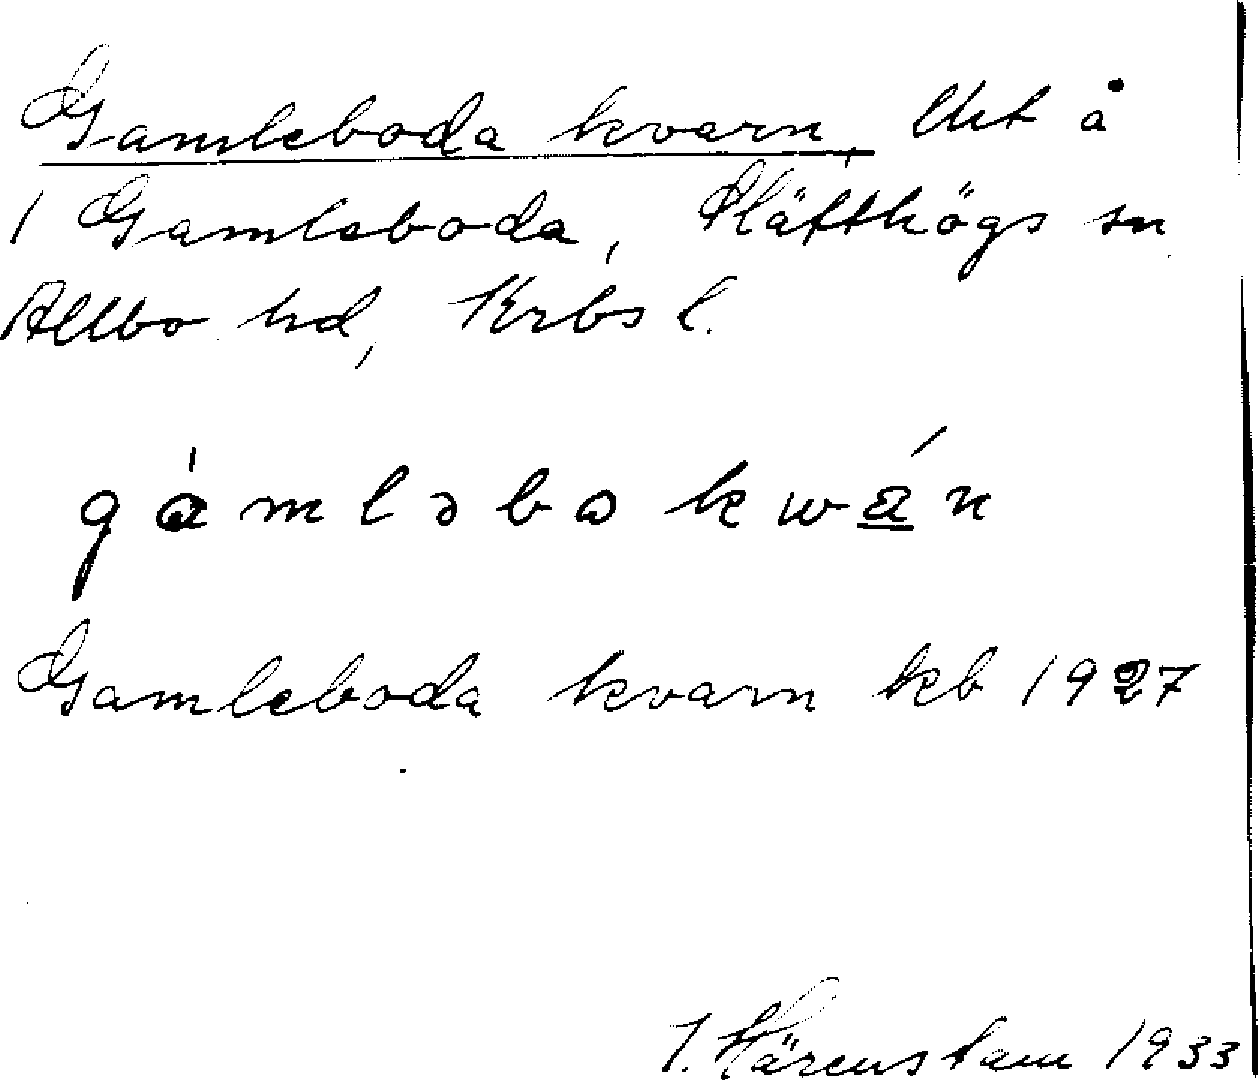 Gamleboda kvarn, Uet å
1 Gamleboda, Slätthögs sn
Allbo hd, Krbs l.
gámləbo kwán
Gamleboda kvarn kb 1927
J. Härenstam 1933